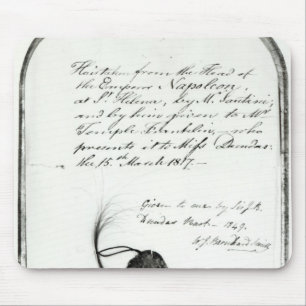 Hair taken from the Head of
the Emperor Napoleon,
at St. Helena, by M. Santini;
and by him given to Mr.
Temple Franklin, who
presents it to Miss Dundas.
the 15th March 1817.—
Given to me by
Dundas 1849.